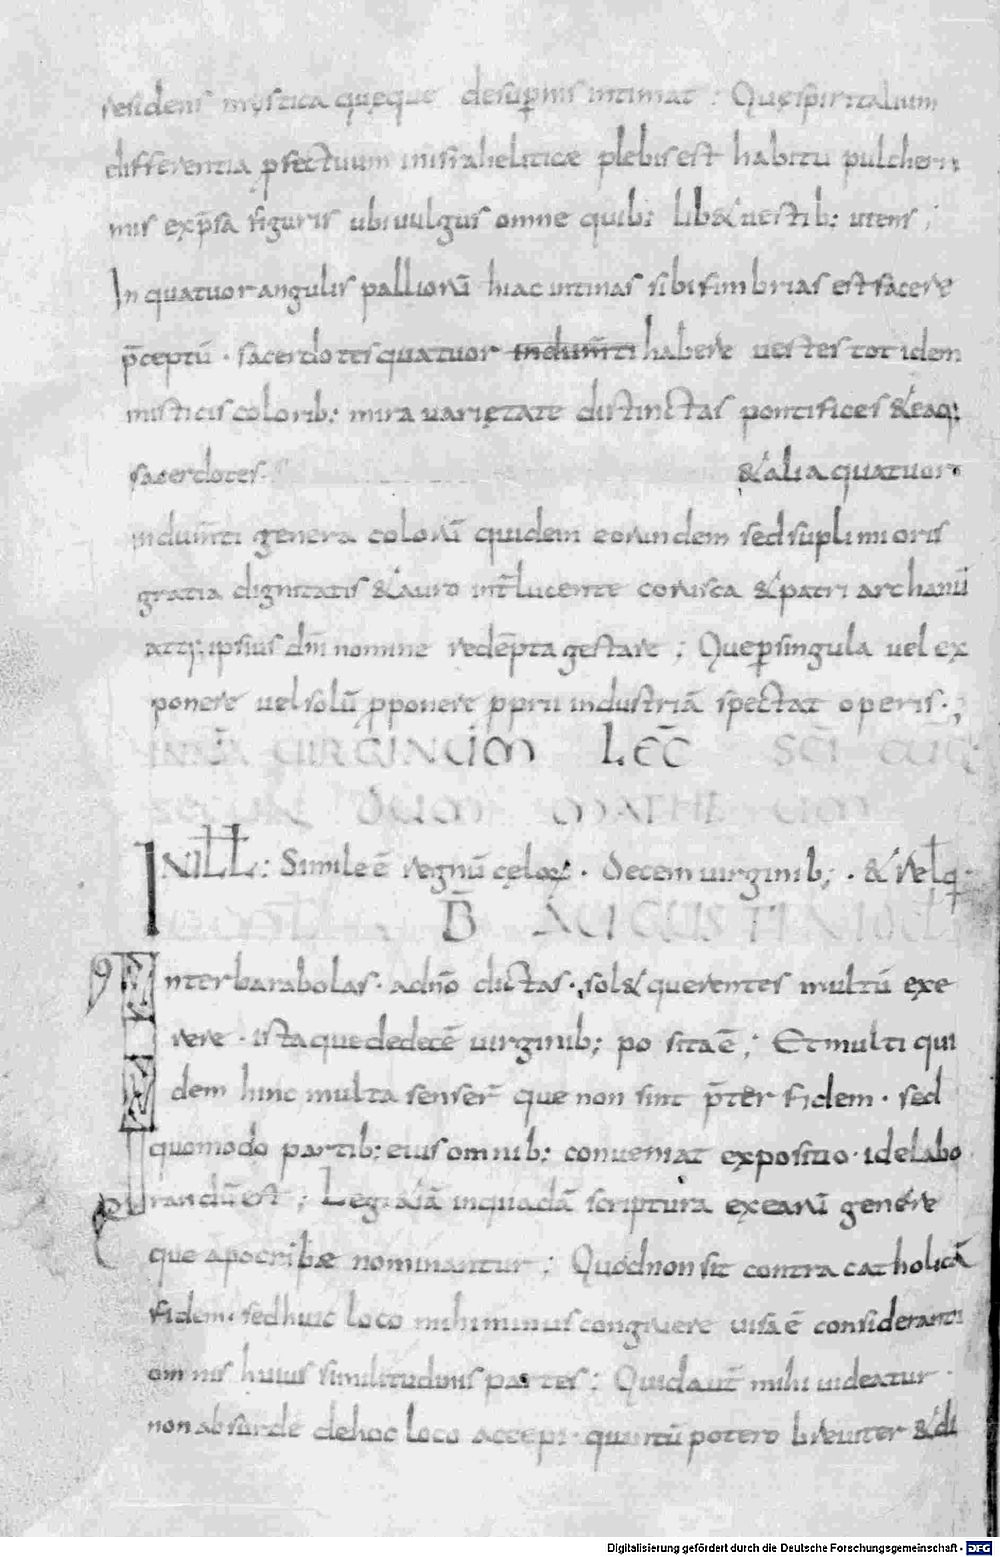 residens mystica quęque desup̄nis intimat : Quę spiritalium
differentia ꝓfectuum in israheliticæ plebis est habitu pulcherri
mis exp̄sa figuris ubi uulgus omne quib; lib& uestib; utens ;
In quatuor angulis palliorū hiacintinas sibi fimbrias est facere
p̄ceptū · sacerdotes quatuor indum̄ti habere uestes totidem
misticis colorib; mira uarietate distinctas pontifices & eaq;
sacerdotes · & alia quatuor
indum̄ti genera colorū quidem eorundem sed suplimioris
gratia dignitatis & auro int̄lucente corusca & patri archanū
atq; ipsius dn̄i nomine redēpta gestare ; Que ꝑ singula uel ex
ponere uel solū ꝓponere ꝓprii industriā spectat operis · ;
UIRGINUM LEC̄ SC̄I EUG
SECUN DUM MATHE UM
IN ILL̄ : Simile ē regnū cęloꝝ · decem uirginib; · & relq̄
B̄ AUGUSTINI
Inter barabolas · a dn̄o dictas · sol& querentes multū exe
rere · ista que de decē uirginib; posita ē ; Et multi qui
dem hinc multa senser̄ que non sint p̄ter fidem · sed
quomodo partib; eius omnib; conueniat expositio · id elabo
randū est ; Legi aīā in quadā scriptura ex earū genere
que apocriphæ nominantur ; Quod non sit contra catholicā
fidem · sed huic loco mihi minus congruere uisa ē consideranti
omnis huius similitudinis partes ; Quid aut̄ mihi uideatur ·
non absurde de hoc loco accepi · quantū potero breuiter & di